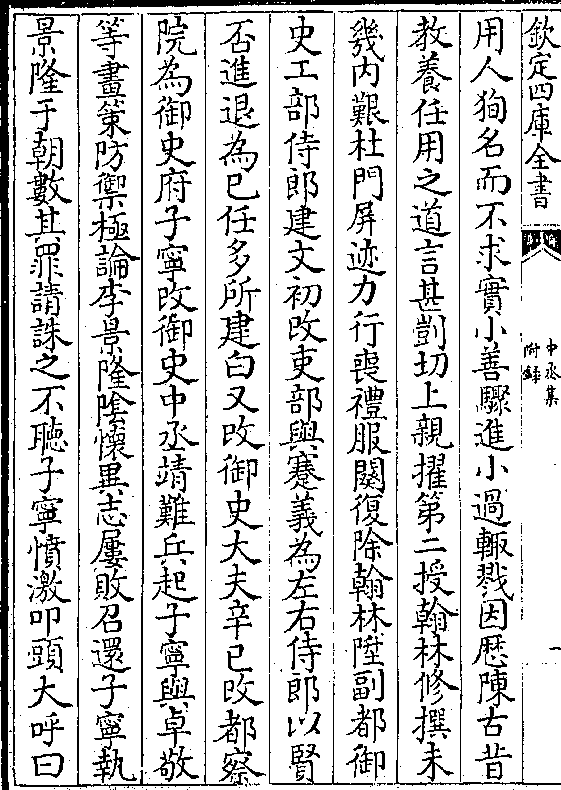 欽定四庫全書
中丞集
附録
一
用人狥名而不求實小善驟進小過輙戮因歴陳古昔
教養任用之道言甚剴切上親擢第二授翰林修撰未
幾内艱杜門屏迹力行喪禮服闋復除翰林陞副都御
史工部侍郎建文初改吏部與蹇義為左右侍郎以賢
否進退為已任多所建白又改御史大夫辛已改都察
院為御史府子寧改御史中丞靖難兵起子寧與卓敬
等畫策防禦極論李景隆隂懷異志屢敗召還子寧執
景隆于朝數其罪請誅之不聽子寧憤激叩頭大呼曰